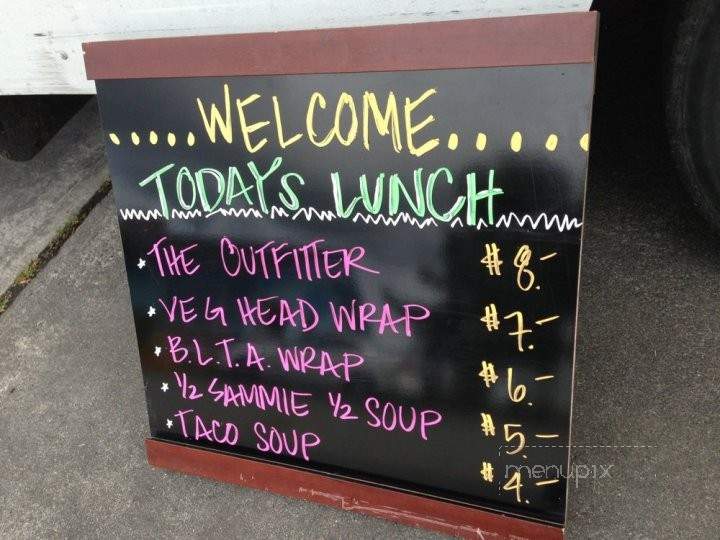 .....WELCOME.....
TODAY'S LUNCH
*THE OUTFITTER $8.-
*VEG HEAD WRAP $7.-
*B.L.T.A. WRAP $6.-
*1/2 SAMMIE 1/2 SOUP $5.-
*TACO SOUP $4.-
menupix